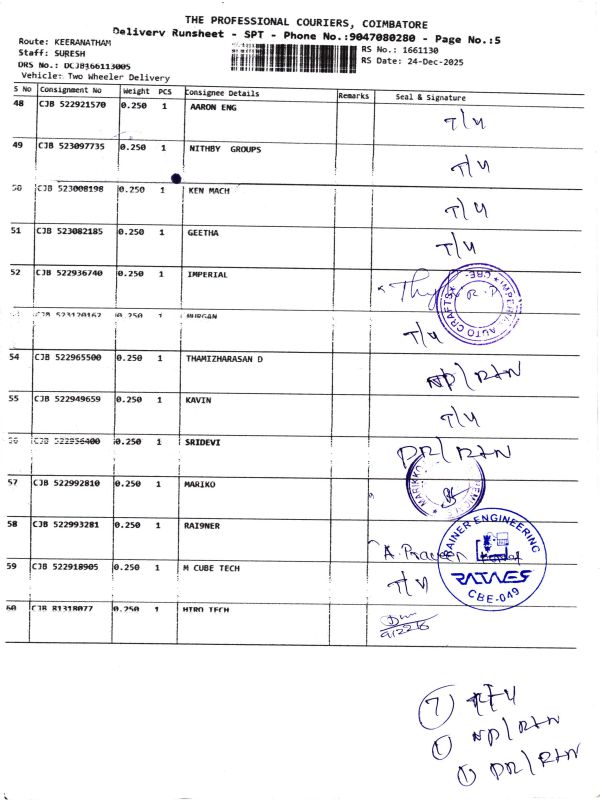 THE PROFESSIONAL COURIERS, COIMBATORE
Delivery Runsheet - SPT - Phone No.:9047080280 - Page No.:5
Route: KEERANATHAM
Staff: SURESH
RS No.: 1661130
DRS No.: DCJB166113005
RS Date: 24-Dec-2025
Vehicle: Two Wheeler Delivery
S No Consignment No Weight PCS Consignee Details Remarks Seal & Signature
48 CJB 522921570 0.250 1 AARON ENG T/4
49 CJB 523097735 0.250 1 NITHBY GROUPS T/4
50 CJB 523008198 0.250 1 KEN MACH T/4
51 CJB 523082185 0.250 1 GEETHA T/4
52 CJB 522936740 0.250 1 IMPERIAL
IMPERIAL AUTO CRAFTS * CBE-
53 CJB 523120167 0.250 1 MURGAN T/4
54 CJB 522965500 0.250 1 THAMIZHARASAN D NP/RTN
55 CJB 522949659 0.250 1 KAVIN T/4
56 CJB 522956400 0.250 1 SRIDEVI DR/RTN
57 CJB 522992810 0.250 1 MARIKO
MARIKKO
58 CJB 522993281 0.250 1 RAI9NER A. Praveen
RAINER ENGINEERING
CBE-049
59 CJB 522918905 0.250 1 M CUBE TECH T/4
60 CJB 81318077 0.250 1 HTRO TECH
7 T/4
1 NP/RTN
1 DR/RTN